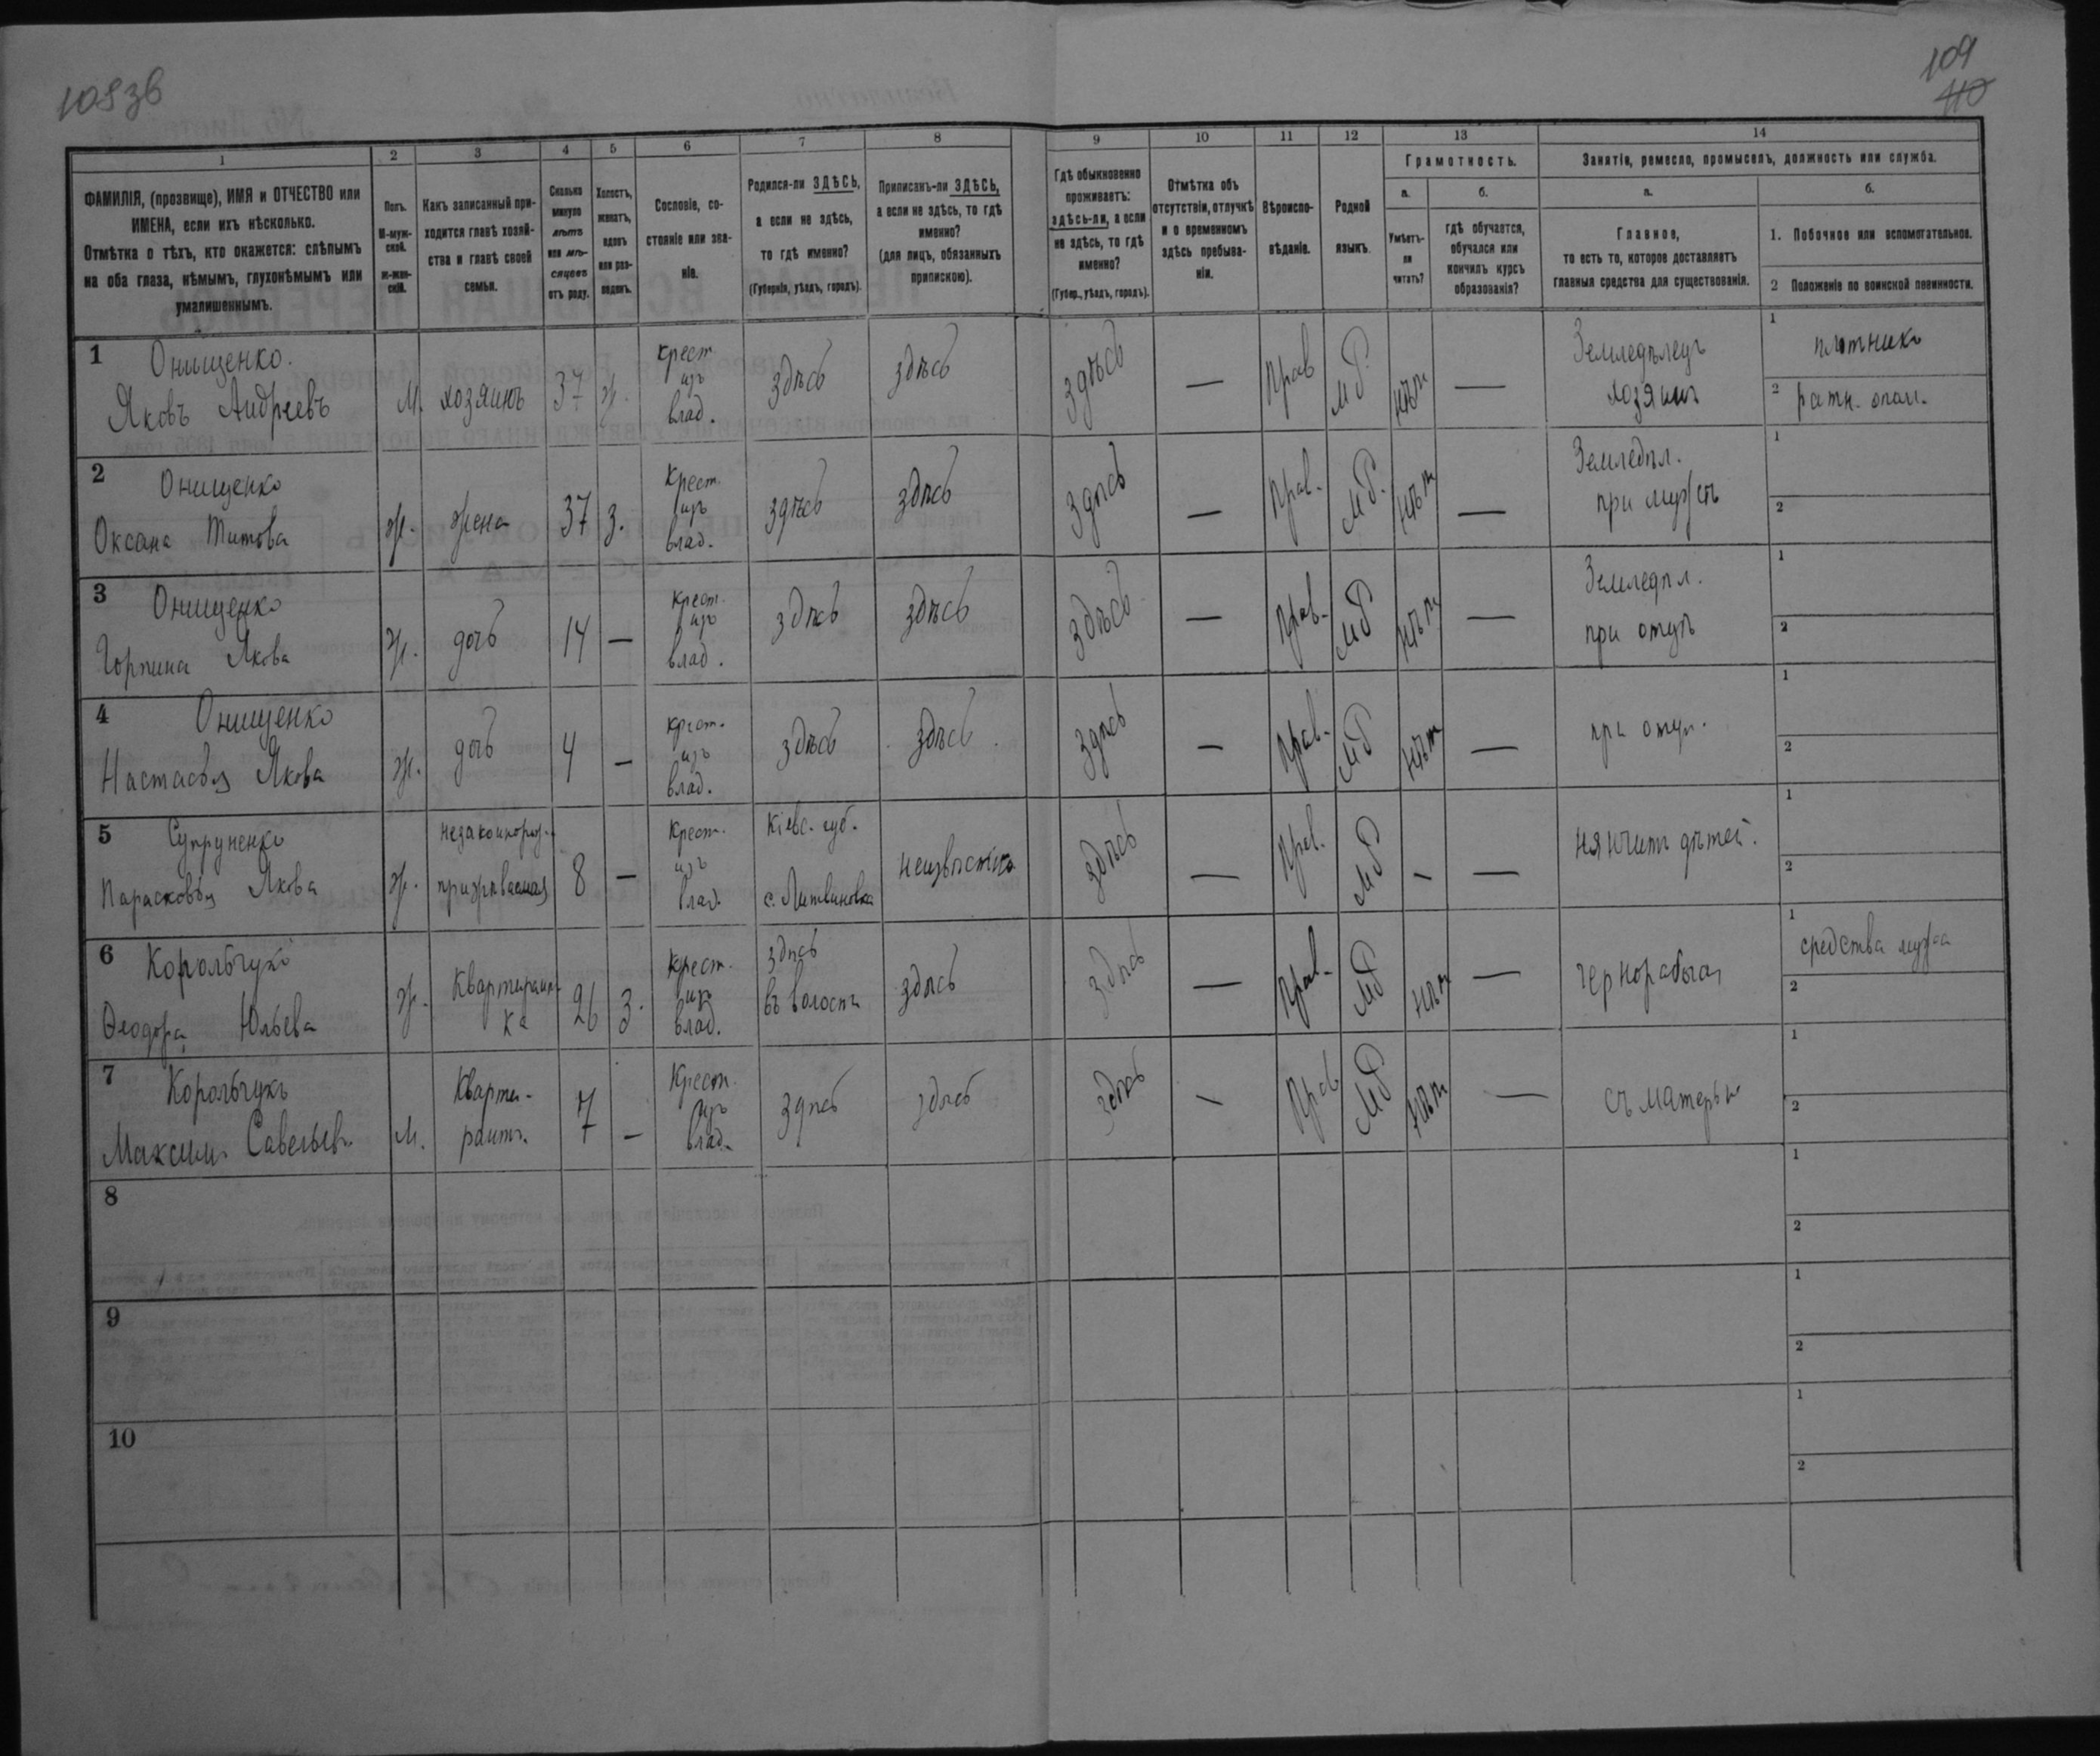 109зв
109
110
1
2
3
4
5
6
7
8
9
10
11
12
13
14
ФАМИЛІЯ, (прозвище), ИМЯ и ОТЧЕСТВО или
ИМЕНА, если ихъ нѣсколько.
Отмѣтка о тѣхъ, кто окажется: слѣпымъ
на оба глаза, нѣмымъ, глухонѣмымъ или
умалишеннымъ.
Полъ.
М-муж-
ской.
ж-жен-
скій.
Какъ записанный при-
ходится главѣ хозяй-
ства и главѣ своей
семьи.
Сколько
минуло
лѣтъ
или мѣ-
сяцевъ
отъ роду.
Холостъ,
женатъ,
вдовъ
или раз-
веденъ.
Сословіе, со-
стояніе или зва-
ніе.
Родился-ли ЗДѢСЬ,
а если не здѣсь,
то гдѣ именно?
(Губернія, уѣздъ, городъ).
Приписанъ-ли ЗДѢСЬ,
а если не здѣсь, то гдѣ
именно?
(для лицъ, обязанныхъ
припискою).
Гдѣ обыкновенно
проживаетъ:
здѣсь-ли, а если
не здѣсь, то гдѣ
именно?
(Губер., уѣздъ, городъ).
Отмѣтка объ
отсутствіи, отлучкѣ
и о временномъ
здѣсь пребыва-
ніи.
Вѣроиспо-
вѣданіе.
Родной
языкъ.
Грамотность.
а.
б.
Умѣетъ-
ли
читать?
гдѣ обучается,
обучался или
кончилъ курсъ
образованія?
Занятіе, ремесло, промыселъ, должность или служба.
а.
б.
Главное,
то есть то, которое доставляетъ
главныя средства для существованія.
1. Побочное или вспомогательное.
2 Положеніе по воинской повинности.
1 Онищенко.
Яковъ Андреевъ
М. хозяинъ 37 ж.
крест
изъ
влад.
здѣсь здѣсь здѣсь — Прав МР нѣт —
Земледѣлецъ
хозяинъ
1 плотника
2 ратн. опол.
2 Онищенко
Оксана Титова
ж. жена 37 з.
крест.
изъ
влад.
здѣсь здѣсь здѣсь — Прав. МР. нѣт —
Земледѣл.
при мужѣ
1
2
3 Онищенко
Горпина Якова
ж. дочь 14 —
крест.
изъ
влад.
здѣсь здѣсь здѣсь — Прав. МР нѣт —
Земледѣл.
при отцѣ
1
2
4 Онищенко
Настасья Якова
ж. дочь 4 —
крест.
изъ
влад.
здѣсь здѣсь здѣсь — Прав. МР нѣт —
при отцѣ.
1
2
5 Супруненко
Парасковья Якова
ж.
незаконорож.
8 —
Крест.
изъ
влад.
Кіевс. губ.
с. Литвиновка
неизвѣстно здѣсь — Прав. МР - —
нянчитъ дѣтей.
1
2
6 Корольчукъ
Ѳеодора Юльева
ж.
Квартирант
ка
26 з.
крест.
изъ
влад.
здѣсь
въ волости
здѣсь здѣсь — Прав. МР нѣт —
чернорабочая
1 средства мужа
2
7 Корольчукъ
Максимъ Савельев.
М.
Кварти-
рантъ.
7 —
Крест.
изъ
влад.
здѣсь здѣсь здѣсь — Прав МР нѣт —
съ матерью
1
2
8
1
2
9
1
2
10
1
2